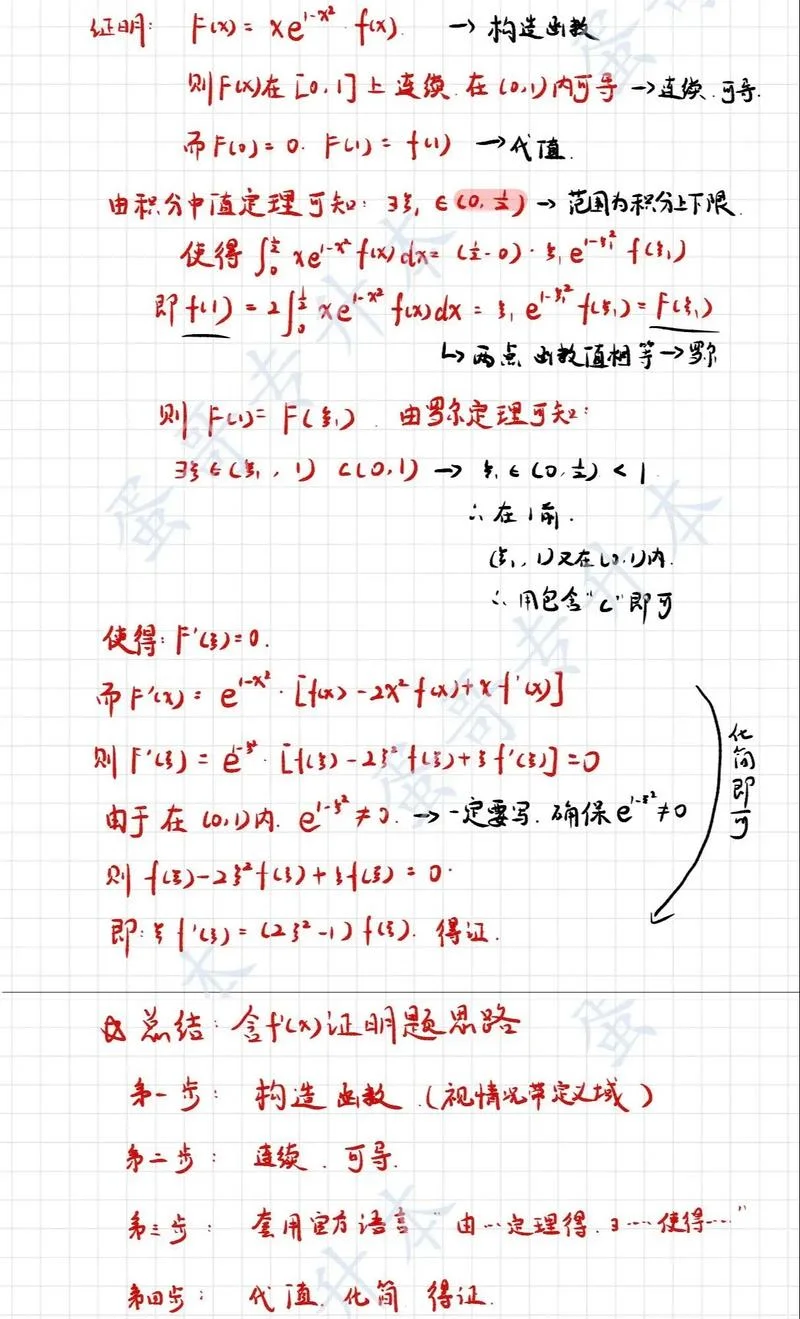 证明: F(x) = xe^{1-x²}·f(x). → 构造函数
则F(x)在[0,1]上连续.在(0,1)内可导 →连续.可导.
而F(0)=0. F(1)=f(1) →代值.
由积分中值定理可知: ∃ξ₁∈(0,½) → 范围为积分上下限.
使得∫₀^{½} xe^{1-x²}f(x)dx=(½-0)·ξ₁e^{1-ξ₁²}f(ξ₁)
即f(1)=2∫₀^{½} xe^{1-x²}f(x)dx=ξ₁e^{1-ξ₁²}f(ξ₁)=F(ξ₁)
↳两点函数值相等→罗尔
则F(1)=F(ξ₁).由罗尔定理可知:
∃ξ∈(ξ₁,1)⊂(0,1) → ξ₁∈(0,½)<1
∴在1前.
(ξ₁,1)又在(0,1)内.
∴用包含"⊂"即可
使得:F'(ξ)=0.
而F'(x)=e^{1-x²}·[f(x)-2x²f(x)+xf'(x)]
则F'(ξ)=e^{1-ξ²}·[f(ξ)-2ξ²f(ξ)+ξf'(ξ)]=0
由于在(0,1)内.e^{1-ξ²}≠0.→一定要写.确保e^{1-ξ²}≠0
化简即可
则f(ξ)-2ξ²f(ξ)+ξf(ξ)=0.
即:ξf'(ξ)=(2ξ²-1)f(ξ).得证.
☆总结:含f'(x)证明题思路
第一步: 构造函数.(视情况带定义域)
第二步: 连续.可导.
第三步: 套用官方语言"由…定理得.∃…使得…"
第四步: 代值.化简.得证.
蛋哥专升本
蛋哥专升本